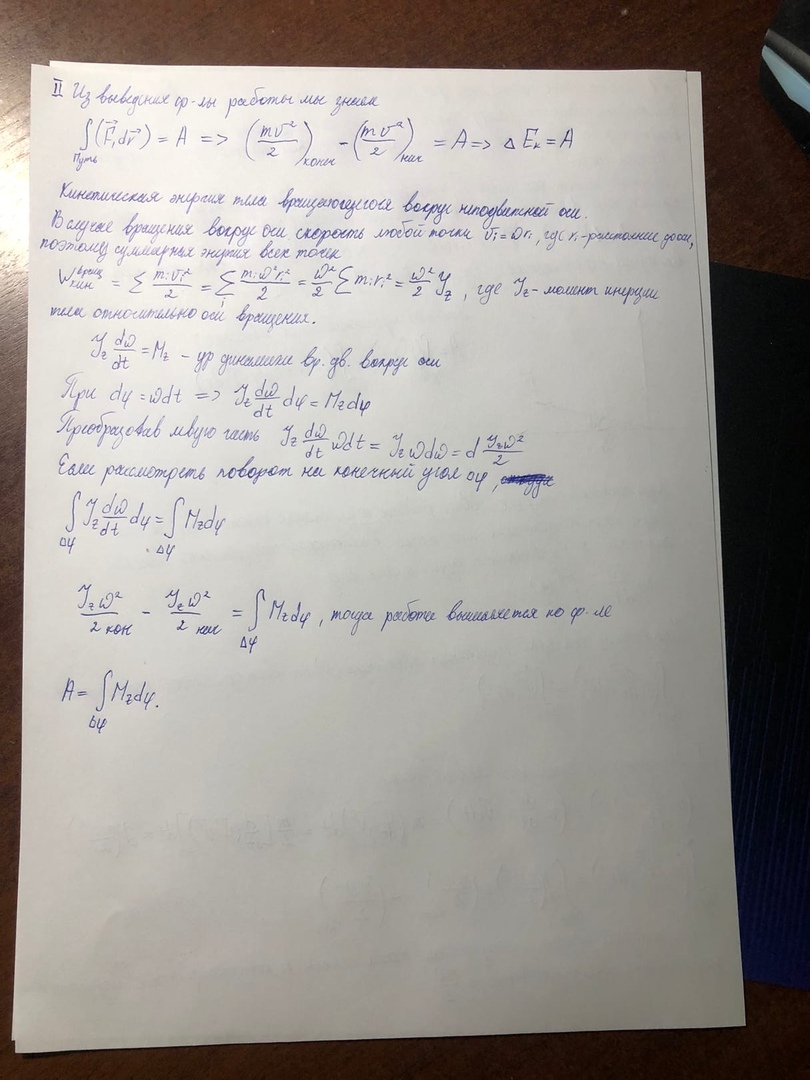 II Из выведения ф-лы работы мы знаем
∫(F⃗, dr⃗) = A => (mv²/2) - (mv²/2) = A => Δ Eк = A
Путь конеч нач
Кинетическая энергия тела вращающегося вокруг неподвижной оси.
В случае вращения вокруг оси скорость любой точки vi = ωri, где ri - расстояние до оси,
поэтому суммарная энергия всех точек
W кин вращ = Σ mivi²/2 = Σ miω²ri²/2 = ω²/2 Σ miri² = ω²/2 Jz, где Jz - момент инерции
тела относительно оси вращения.
Jz dω/dt = Mz - ур динамики вр. дв. вокруг оси
При dφ = ωdt => Jz dω/dt dφ = Mzdφ
Преобразовав левую часть Jz dω/dt ωdt = Jzωdω = d Jzω²/2
Если рассмотреть поворот на конечный угол Δφ,
∫ Jz dω/dt dφ = ∫ Mzdφ
Δφ Δφ
Jzω²/2 кон - Jzω²/2 нач = ∫ Mzdφ, тогда работа вычисляется по ф-ле
Δφ
A = ∫ Mzdφ.
Δφ